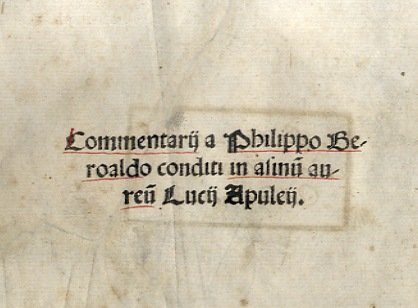 Commentarij a Philippo Be-
roaldo conditi in asinū au-
reū Lucij Apuleij.